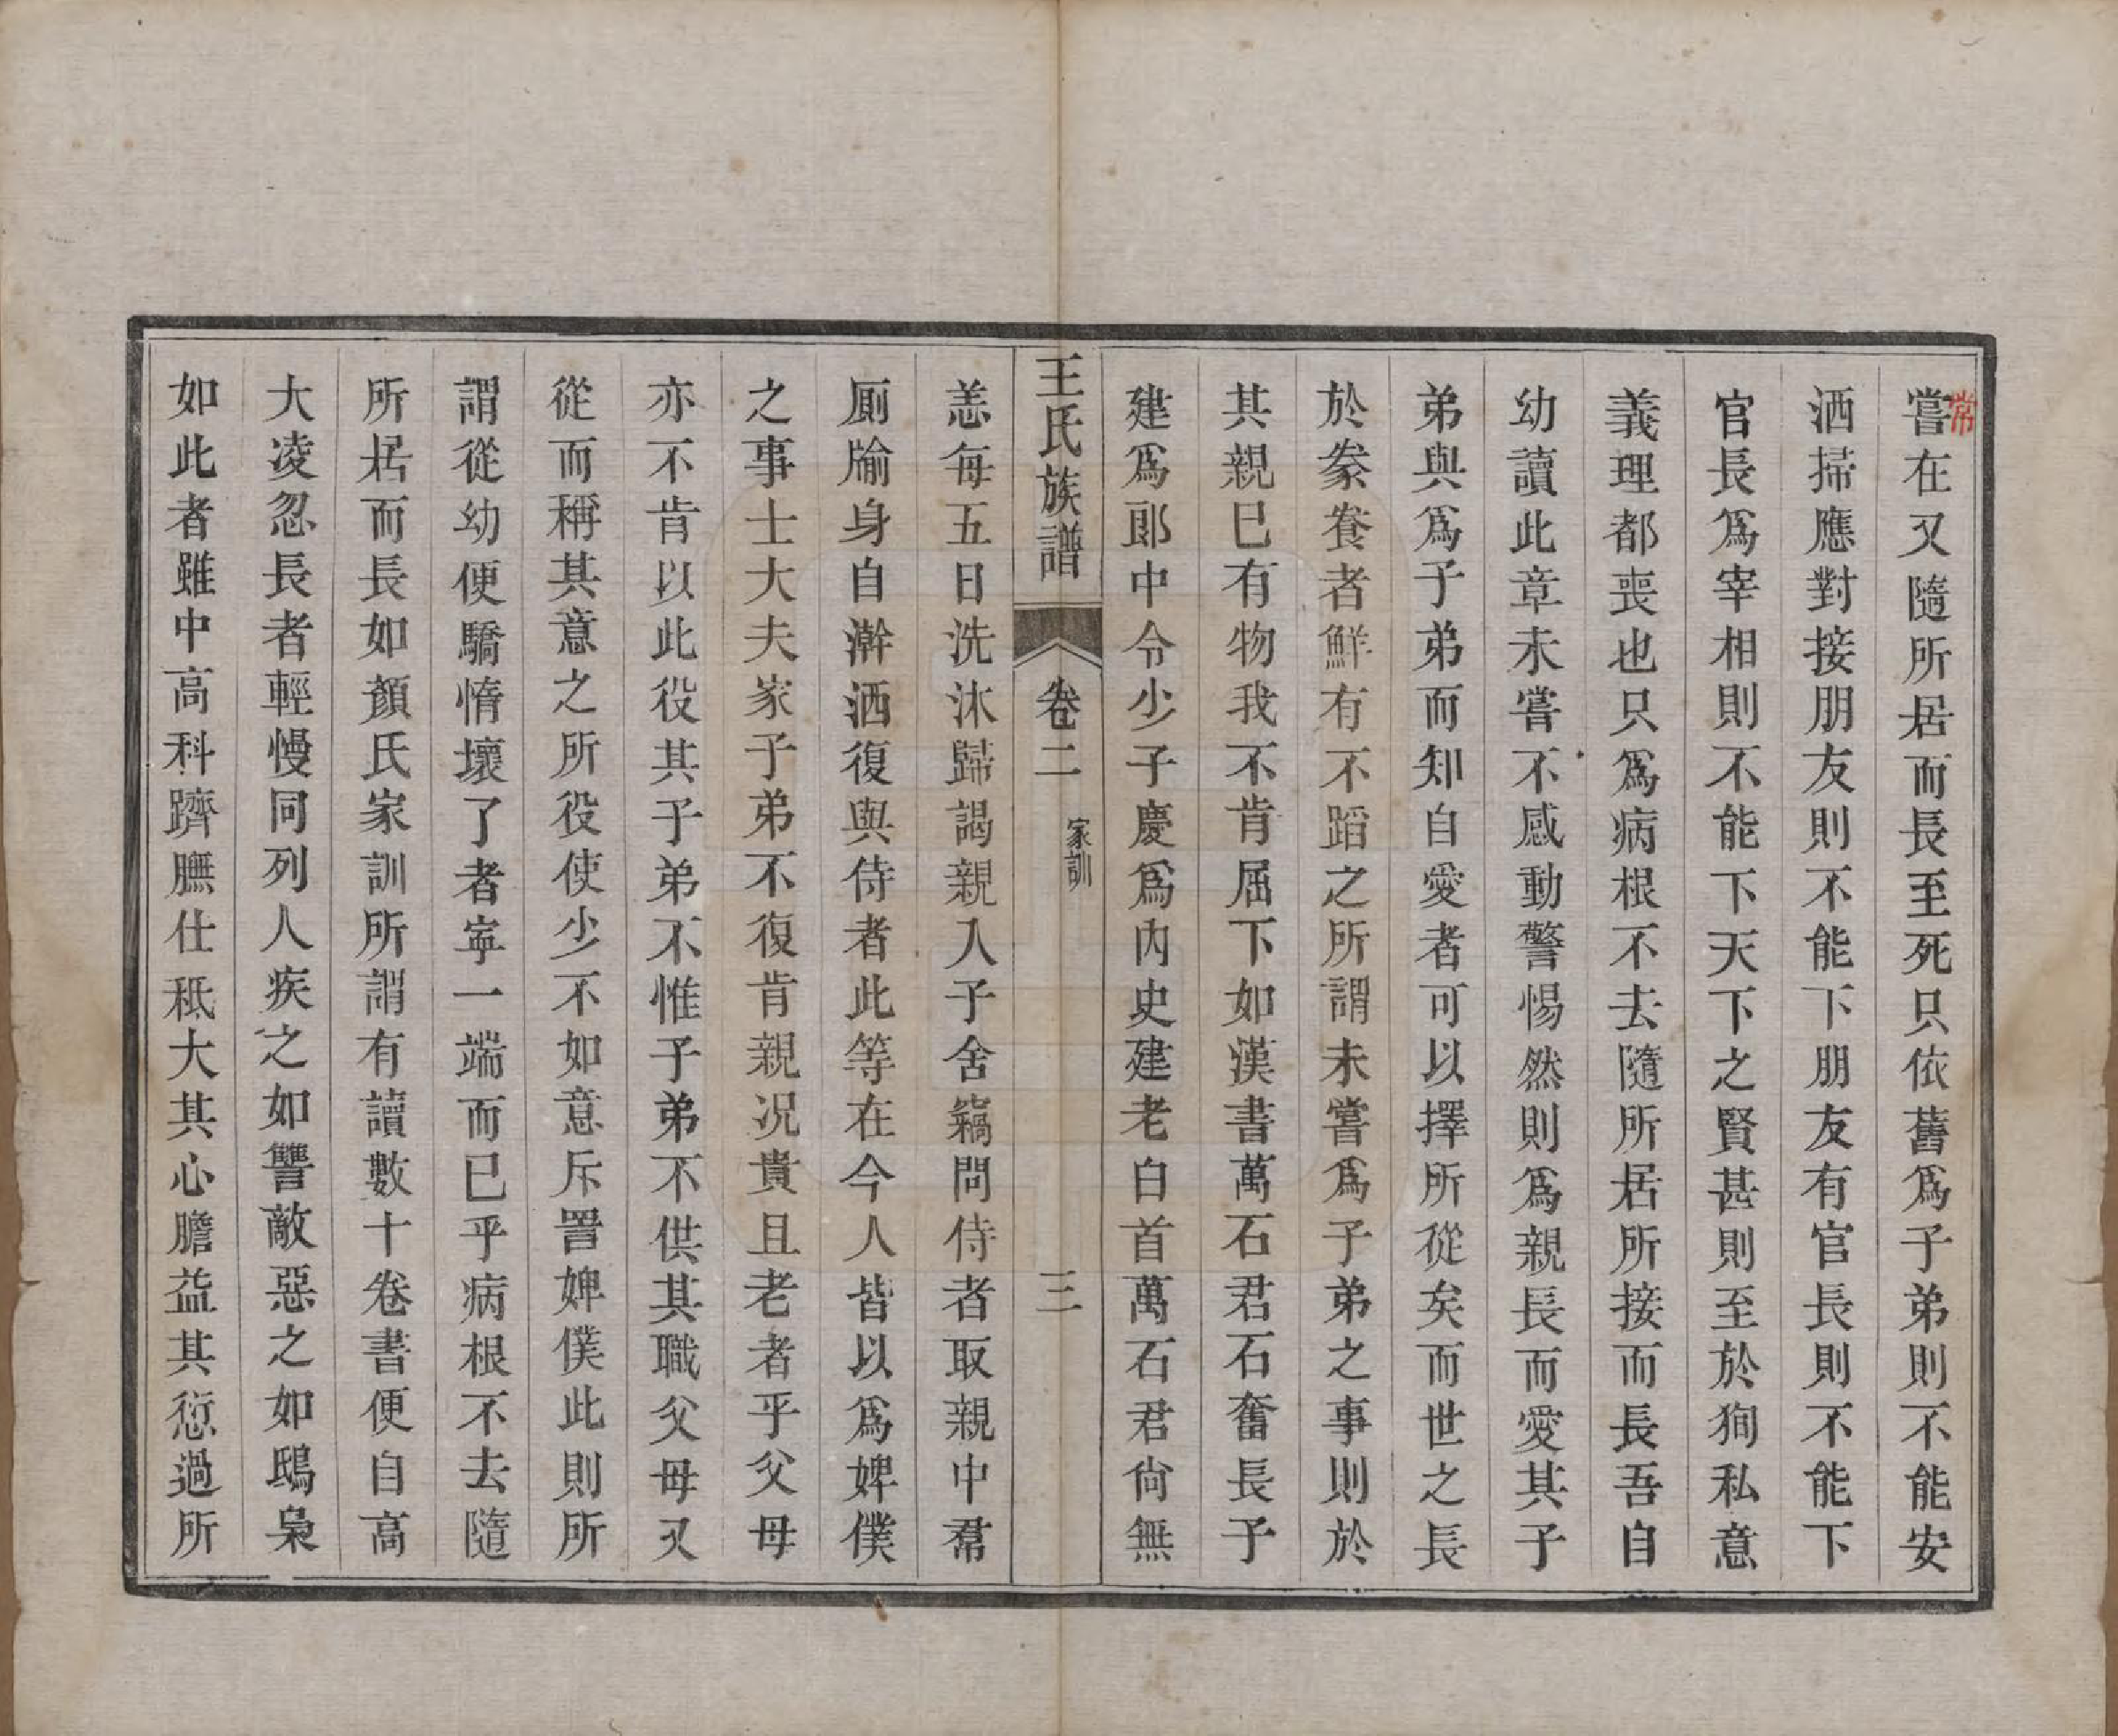 常
嘗在又隨所居而長至死只依舊爲子弟則不能安
洒掃應對接朋友則不能下朋友有官長則不能下
官長爲宰相則不能下天下之賢甚則至於狥私意
義理都喪也只爲病根不去隨所居所接而長吾自
幼讀此章未嘗不感動警惕然則爲親長而愛其子
弟與爲子弟而知自愛者可以擇所從矣而世之長
於豢養者鮮有不蹈之所謂未嘗爲子弟之事則於
其親已有物我不肯屈下如漢書萬石君石奮長子
建爲郞中令少子慶爲內史建老白首萬石君尙無
王氏族譜 卷二 家訓 三
恙每五日洗沐歸謁親入子舍竊問侍者取親中帬
厠牏身自澣洒復與侍者此等在今人皆以爲婢僕
之事士大夫家子弟不復肯親况貴且老者乎父母
亦不肯以此役其子弟不惟子弟不供其職父母又
從而稱其意之所役使少不如意斥詈婢僕此則所
謂從幼便驕惰壞了者寧一端而已乎病根不去隨
所居而長如顏氏家訓所謂有讀數十卷書便自高
大凌忽長者輕慢同列人疾之如讐敵惡之如鴟梟
如此者雖中高科躋膴仕秪大其心膽益其愆過所